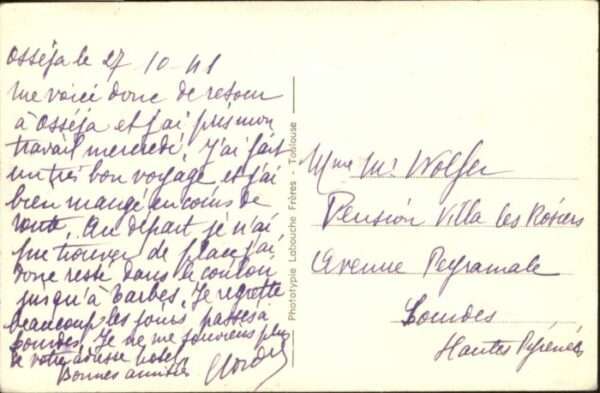 Osséja le 27-10-41
me voici donc de retour
à Osséja et j'ai pris mon
travail mercredi. J'ai fait
un très bon voyage et j'ai
bien mangé en cours de
route. Au départ je n'ai
pu trouver de place j'ai
donc resté dans le couloir
jusqu'à Tarbes. Je regrette
beaucoup les jours passés à
Lourdes. Je ne me souviens plus
de votre adresse hotel
Bonnes amitiés
Phototypie Labouche Frères - Toulouse
Mme Mr Wolfer
Pension Villa les Rosiers
Avenue Peyramale
Lourdes
Hautes Pyrénées